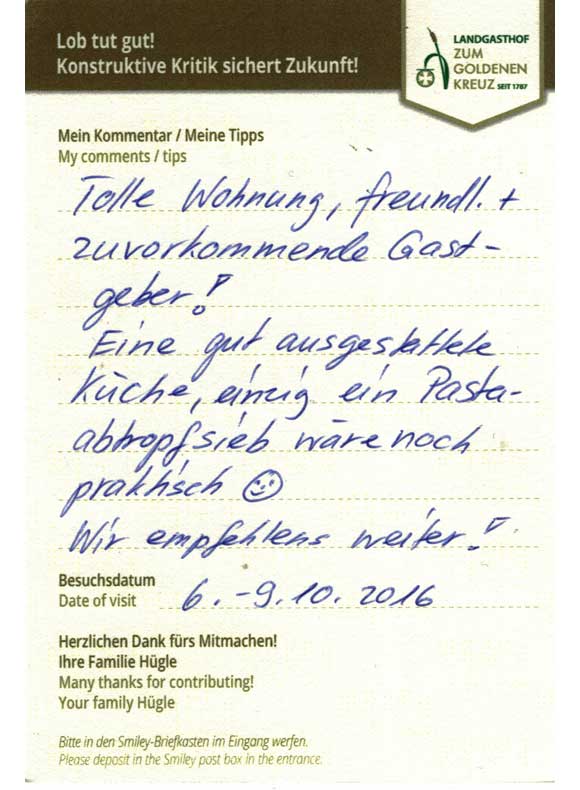 Lob tut gut!
Konstruktive Kritik sichert Zukunft!
LANDGASTHOF
ZUM
GOLDENEN
KREUZ SEIT 1787
Mein Kommentar / Meine Tipps
My comments / tips
Tolle Wohnung, freundl. +
zuvorkommende Gast-
geber!
Eine gut ausgestattete
Küche, einzig ein Pasta-
abtropfsieb wäre noch
praktisch ☺
Wir empfehlens weiter!
Besuchsdatum
Date of visit 6. - 9. 10. 2016
Herzlichen Dank fürs Mitmachen!
Ihre Familie Hügle
Many thanks for contributing!
Your family Hügle
Bitte in den Smiley-Briefkasten im Eingang werfen.
Please deposit in the Smiley post box in the entrance.